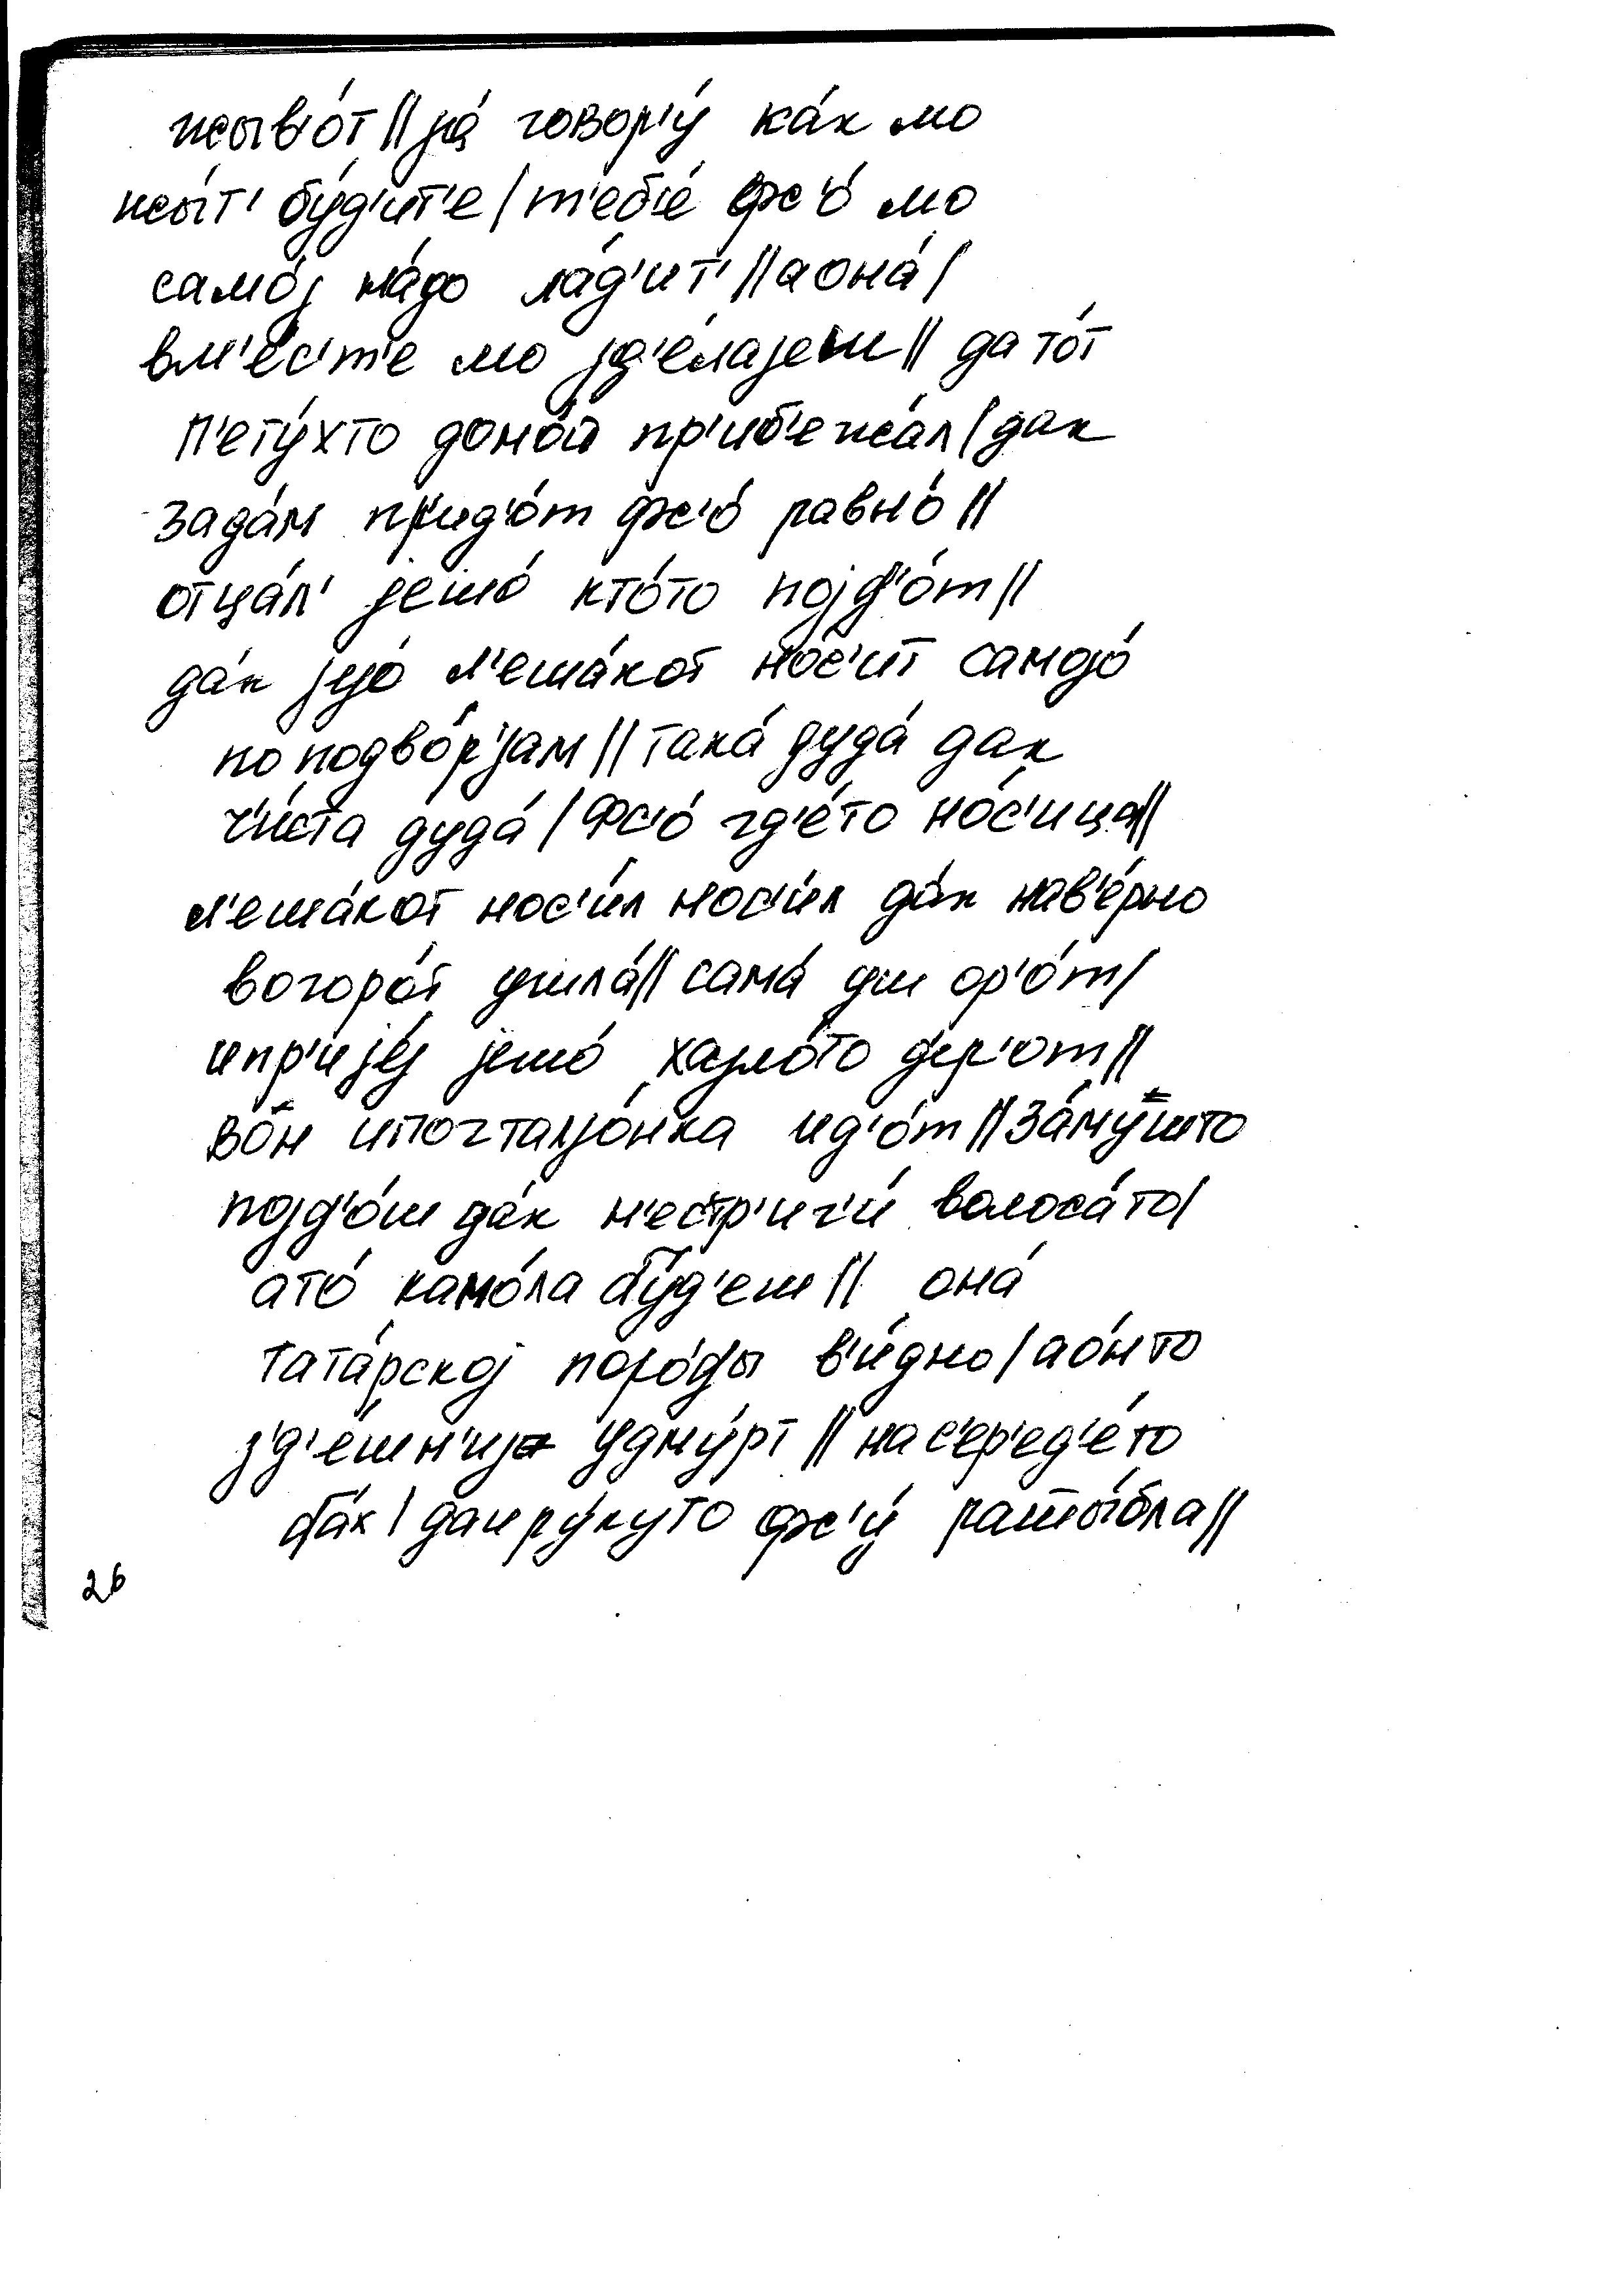 жыв'о́т || ја́ говор'у́ ка́к мо
жы́т' бу́д'ит'е / т'еб'е́ фс'о́ мо
само́ј на́до ла́д'ит' || а она́ /
вм'е́с'т'е мо зд'е́лајеш || да то́т
п'ету́хто домо́й пр'иб'ежа́л / дак
зада́м прид'о́т фс'о́ равно́ ||
отца́л' јешо́ кто́то пој д'о́т ||
да́к јејо́ л'еша́кот но́с'ит самојо́
по подво́р'јам || така́ дуда́ дак
ч'и́ста дуда́ / фс'о́ гд'е́то но́с'ица ||
л'еша́кот нос'и́л нос'и́л да́к нав'е́рно
вогоро́т ушла́ || сама́ уш ор'о́т /
ипр'ије́ј јешо́ хајло́то д'ер'от ||
во́н ипочталјо́нка ид'о́т || за́мушто
појд'о́ш да́к н'естр'иг'и́ волоса́то /
ато́ камо́ла бу́д'еш || она́
тата́рској поро́ды в'и́дно / ао́нто
з'д'е́шн'иј удму́рт || нас'ер'ед'е́то
ба́х / даиру́куто фс'у́ рашы́бла ||
26